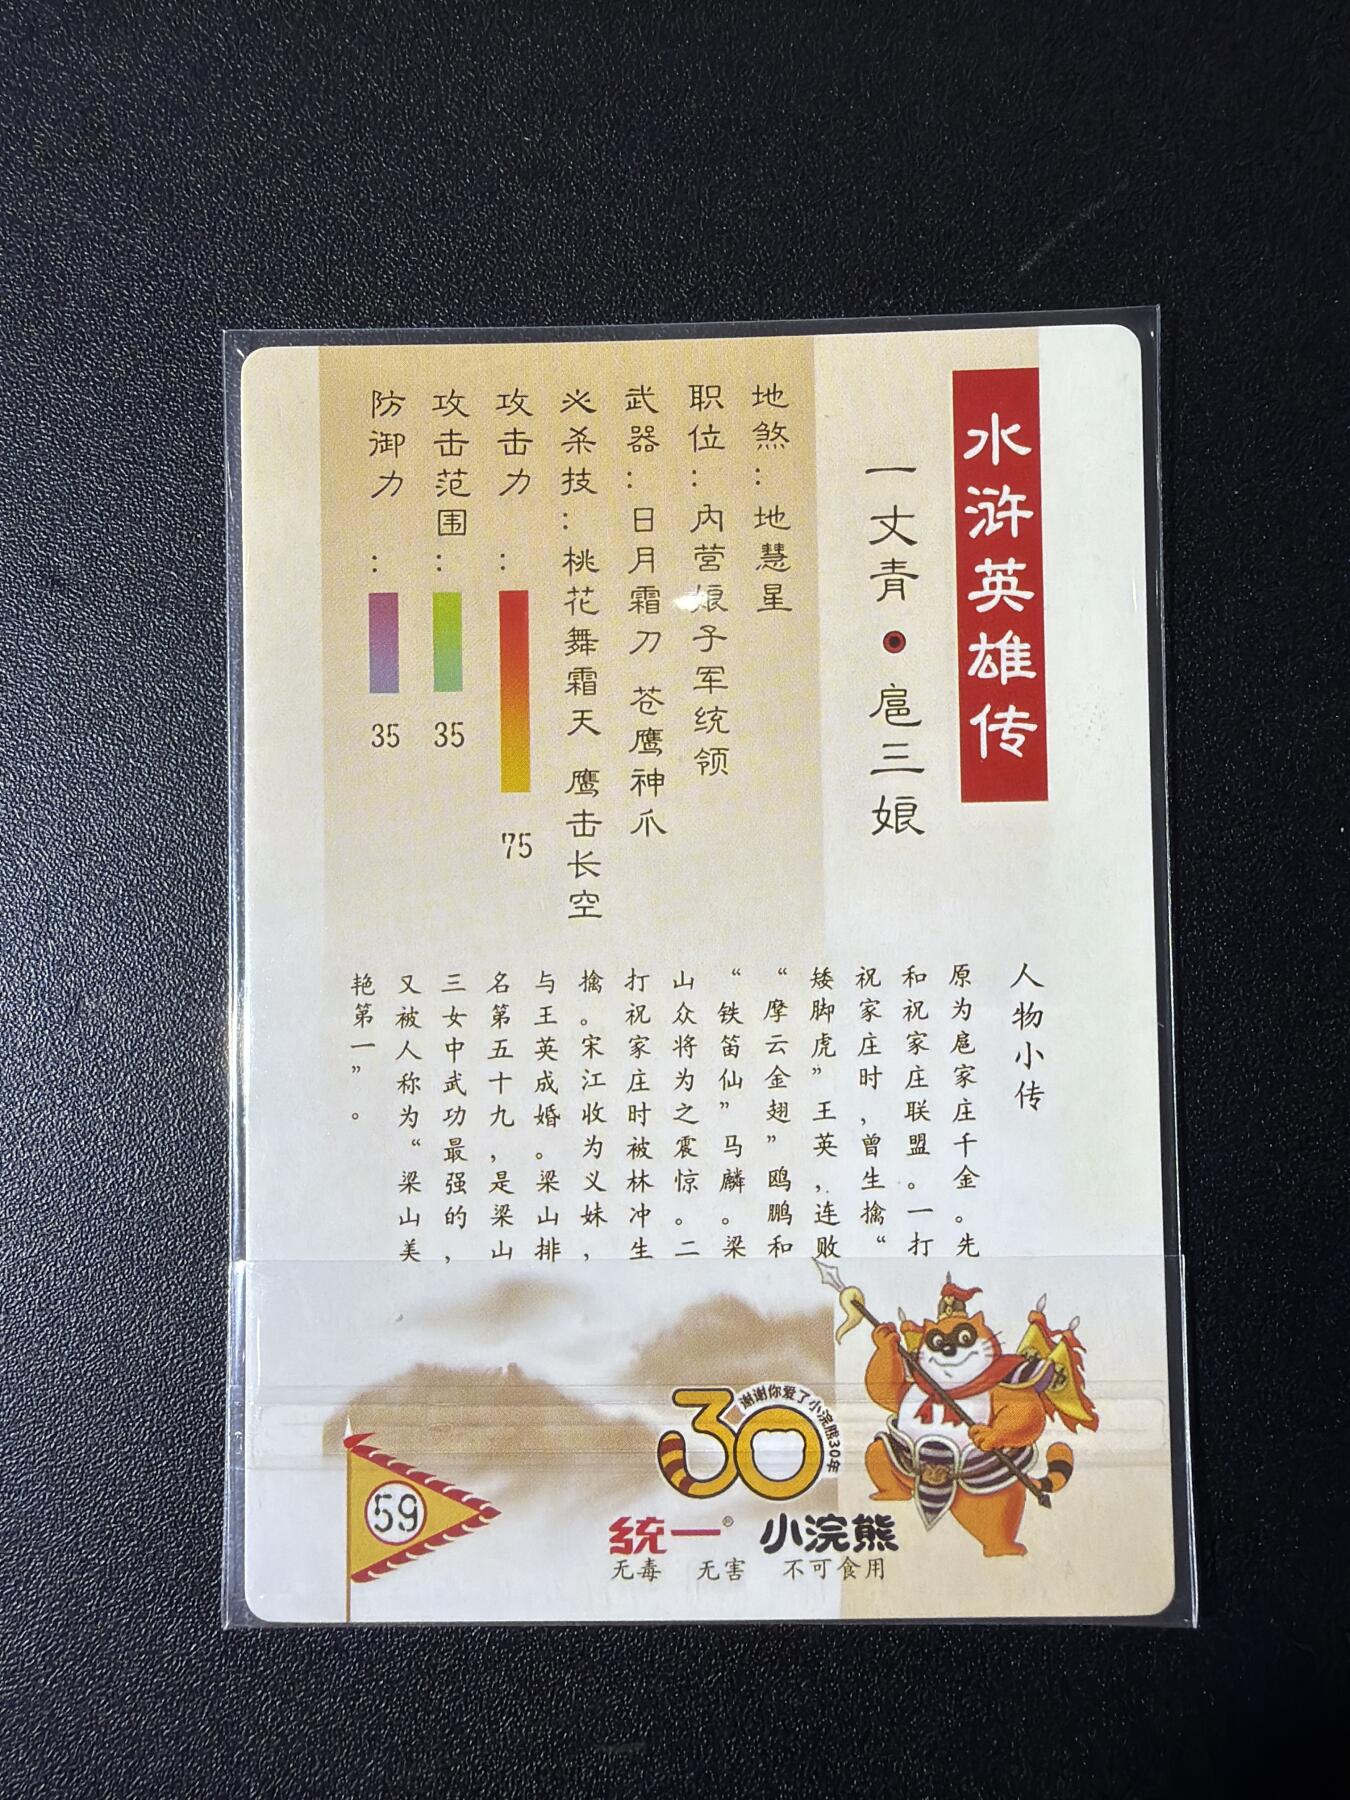 水浒英雄传
一丈青●扈三娘
地煞：地慧星
职位：内营娘子军统领
武器：日月霜刀 苍鹰神爪
必杀技：桃花舞霜天 鹰击长空
攻击力：75
攻击范围：35
防御力：35
人物小传
原为扈家庄千金。先
和祝家庄联盟。一打
祝家庄时，曾生擒“
矮脚虎”王英，连败
“摩云金翅”鸥鹏和
“铁笛仙”马麟。梁
山众将为之震惊。二
打祝家庄时被林冲生
擒。宋江收为义妹，
与王英成婚。梁山排
名第五十九，是梁山
三女中武功最强的，
又被人称为“梁山美
艳第一”。
30
谢谢你爱了小浣熊30年
统一® 小浣熊
无毒 无害 不可食用
59